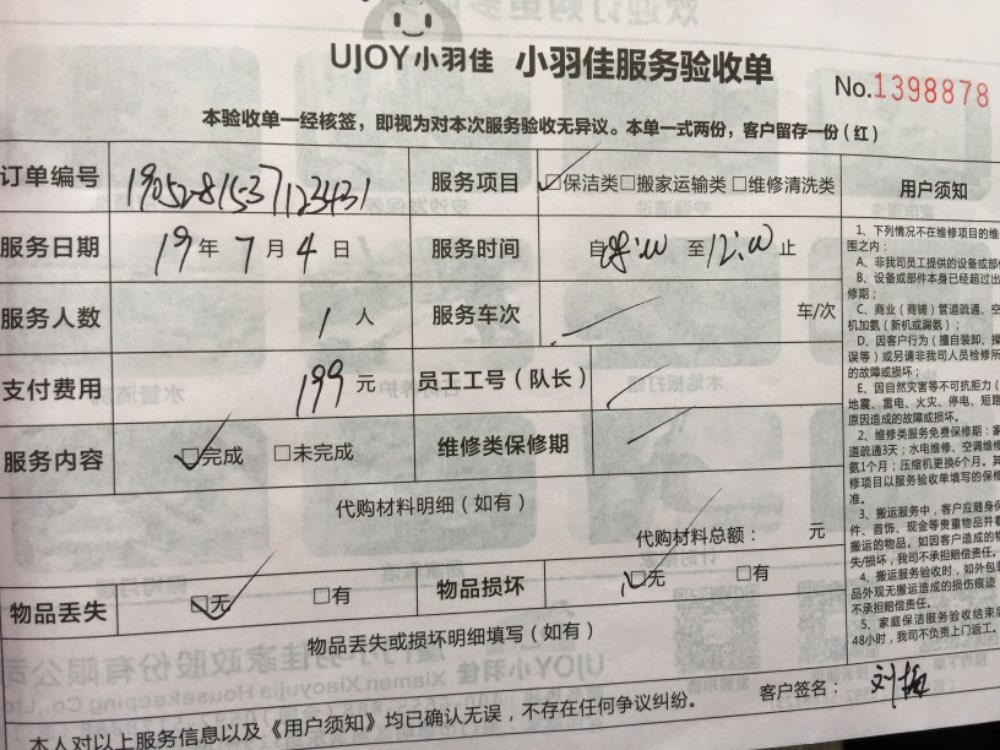 UJOY小羽佳 小羽佳服务验收单
No.1398878
本验收单一经核签，即视为对本次服务验收无异议。本单一式两份，客户留存一份（红）
订单编号 19052815371123431 服务项目 ☑保洁类□搬家运输类□维修清洗类 用户须知
服务日期 19年7月4日 服务时间 自8:00至12:00止
服务人数 1人 服务车次 车/次
支付费用 199元 员工工号（队长）
服务内容 ☑完成 □未完成 维修类保修期
代购材料明细（如有）
代购材料总额： 元
物品丢失 ☑无 □有 物品损坏 ☑无 □有
物品丢失或损坏明细填写（如有）
客户签名：
本人对以上服务信息以及《用户须知》均已确认无误，不存在任何争议纠纷。
1、下列情况不在维修项目的维
围之内：
A、非我司员工提供的设备或部
B、设备或部件本身已经超过出
修期；
C、商业（商铺）管道疏通、空
机加氨（新机或漏氨）；
D、因客户行为（擅自装卸、操
误等）或另请非我司人员检修所
的故障或损坏；
E、因自然灾害等不可抗拒力（
地震、雷电、火灾、停电、短路
原因造成的故障或损坏。
2、维修类服务免费保修期：家
道疏通3天；水电维修、空调维修
氨1个月；压缩机更换6个月。其
修项目以服务验收单填写的保修
准。
3、搬运服务中，客户应随身保
件、首饰、现金等贵重物品并
搬运的物品。如因客户造成的物
失/损坏，我司不承担赔偿责任。
4、搬运服务验收时，如外包装
品外观无搬运造成的损伤痕迹
不承担赔偿责任。
5、家庭保洁服务验收结束后
48小时，我司不负责上门返工。